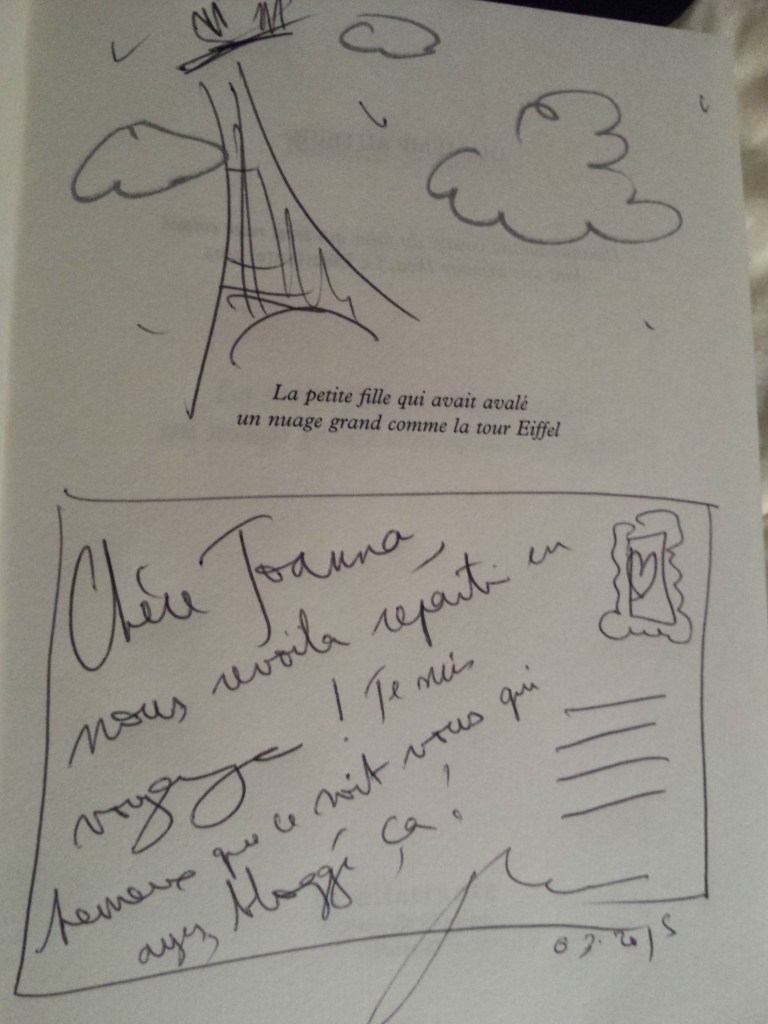 La petite fille qui avait avalé
un nuage grand comme la tour Eiffel
Chère Joanna,
nous revoilà reparti en
voyage ! Je suis
heureux que ce soit vous qui
ayez bloggé ça !
03.2015